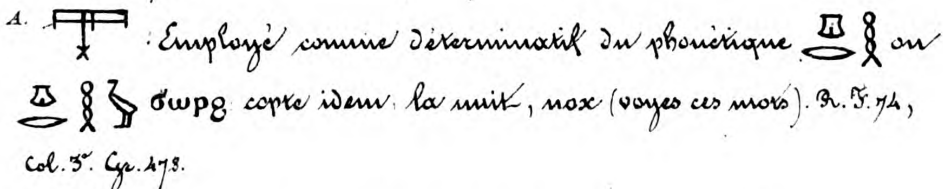 A. 𓇰 : Employé comme déterminatif du phonétique 𓎼𓂋𓎛 ou
𓎼𓂋𓎛𓅱 ϭωρϩ copte idem. la nuit, nox (voyes ces mots). R. F. 74,
Col. 3e. Cyr. 473.